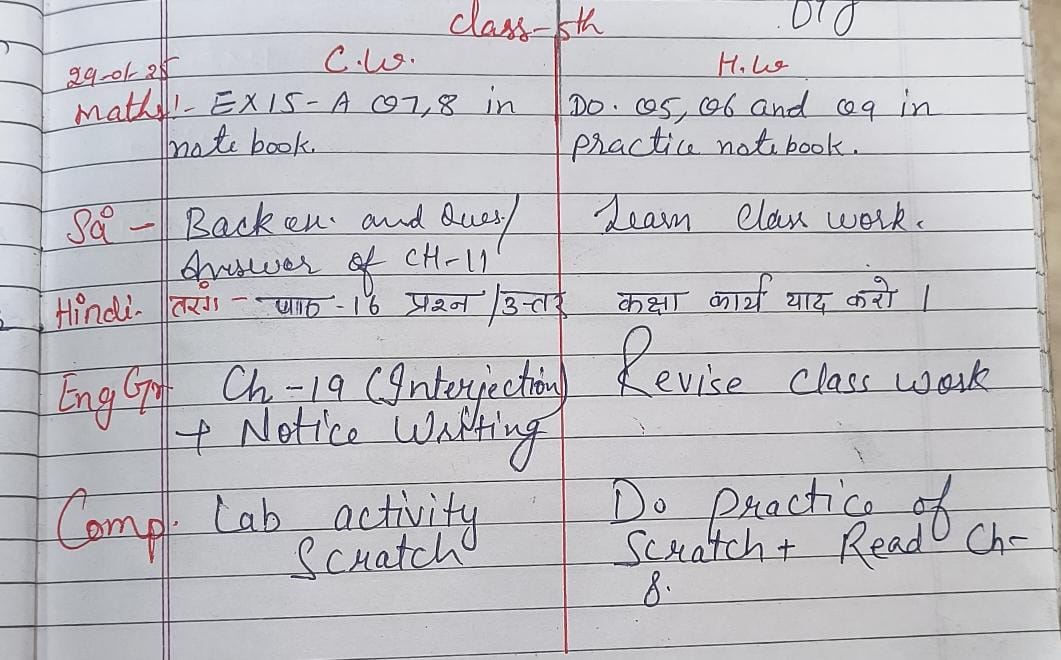 Class-5th
C.W. H.W
29-01-25
Maths:- EX15-A Q7,8 in Do. Q5, Q6 and Q9 in
note book. practice notebook.
Sc - Back ex. and Ques/ Learn Class work.
Answer of CH-11
Hindi- तरंग - पाठ-16 प्रश्न/उत्तर कक्षा कार्य याद करो ।
Eng Gr Ch-19 (Interjection) Revise Class work
+ Notice Writing
Comp. Lab activity Do Practice of
Scratch Scratch + Read Ch-
8.